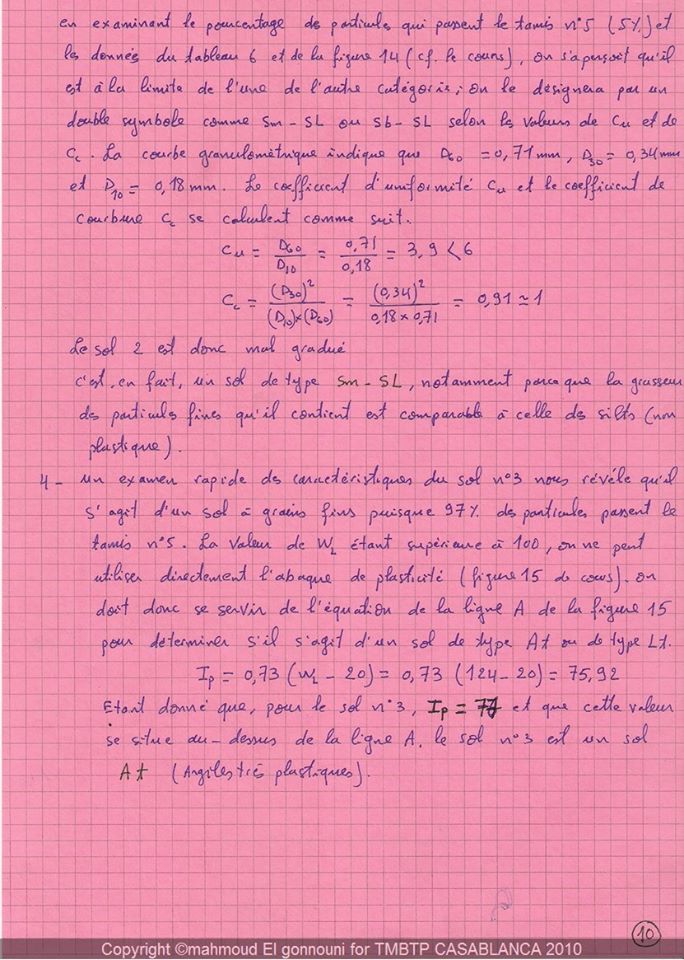 en examinant le pourcentage des particules qui passent le tamis n°5 (5%) et
les données du tableau 6 et de la figure 14 (cf. le cours), on s'aperçoit qu'il
est à la limite de l'une de l'autre catégorie ; on le désignera par un
double symbole comme Sm - SL ou Sb - SL selon les valeurs de Cu et de
Cc. La courbe granulométrique indique que D60 = 0,71 mm, D30 = 0,34 mm
et D10 = 0,18 mm. Le coefficient d'uniformité Cu et le coefficient de
courbure Cc se calculent comme suit.
Cu = D60 / D10 = 0,71 / 0,18 = 3,9 < 6
Cc = (D30)² / (D10)×(D60) = (0,34)² / 0,18 × 0,71 = 0,91 ≃ 1
Le sol 2 est donc mal gradué
c'est, en fait, un sol de type Sm - SL, notamment parce que la grosseur
des particules fines qu'il contient est comparable à celle des silts (non
plastique).
4 - un examen rapide des caractéristiques du sol n°3 nous révèle qu'il
s'agit d'un sol à grains fins puisque 97% des particules passent le
tamis n°5. La valeur de WL étant supérieure à 100, on ne peut
utiliser directement l'abaque de plasticité (figure 15 de cours). on
doit donc se servir de l'équation de la ligne A de la figure 15
pour déterminer s'il s'agit d'un sol de type At ou de type Lt.
Ip = 0,73 (WL - 20) = 0,73 (124 - 20) = 75,92
Etant donné que, pour le sol n°3, Ip = 77 et que cette valeur
se situe au-dessus de la ligne A, le sol n°3 est un sol
At (Argiles très plastiques).
10
Copyright ©mahmoud El gonnouni for TMBTP CASABLANCA 2010